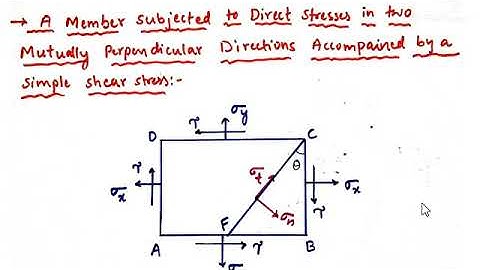 → A Member Subjected to Direct Stresses in two
Mutually Perpendicular Directions Accompained by a
simple shear stress:-
σy
τ
D
C
τ
σt
θ
σx
σx
σn
τ
F
A
τ
B
σ